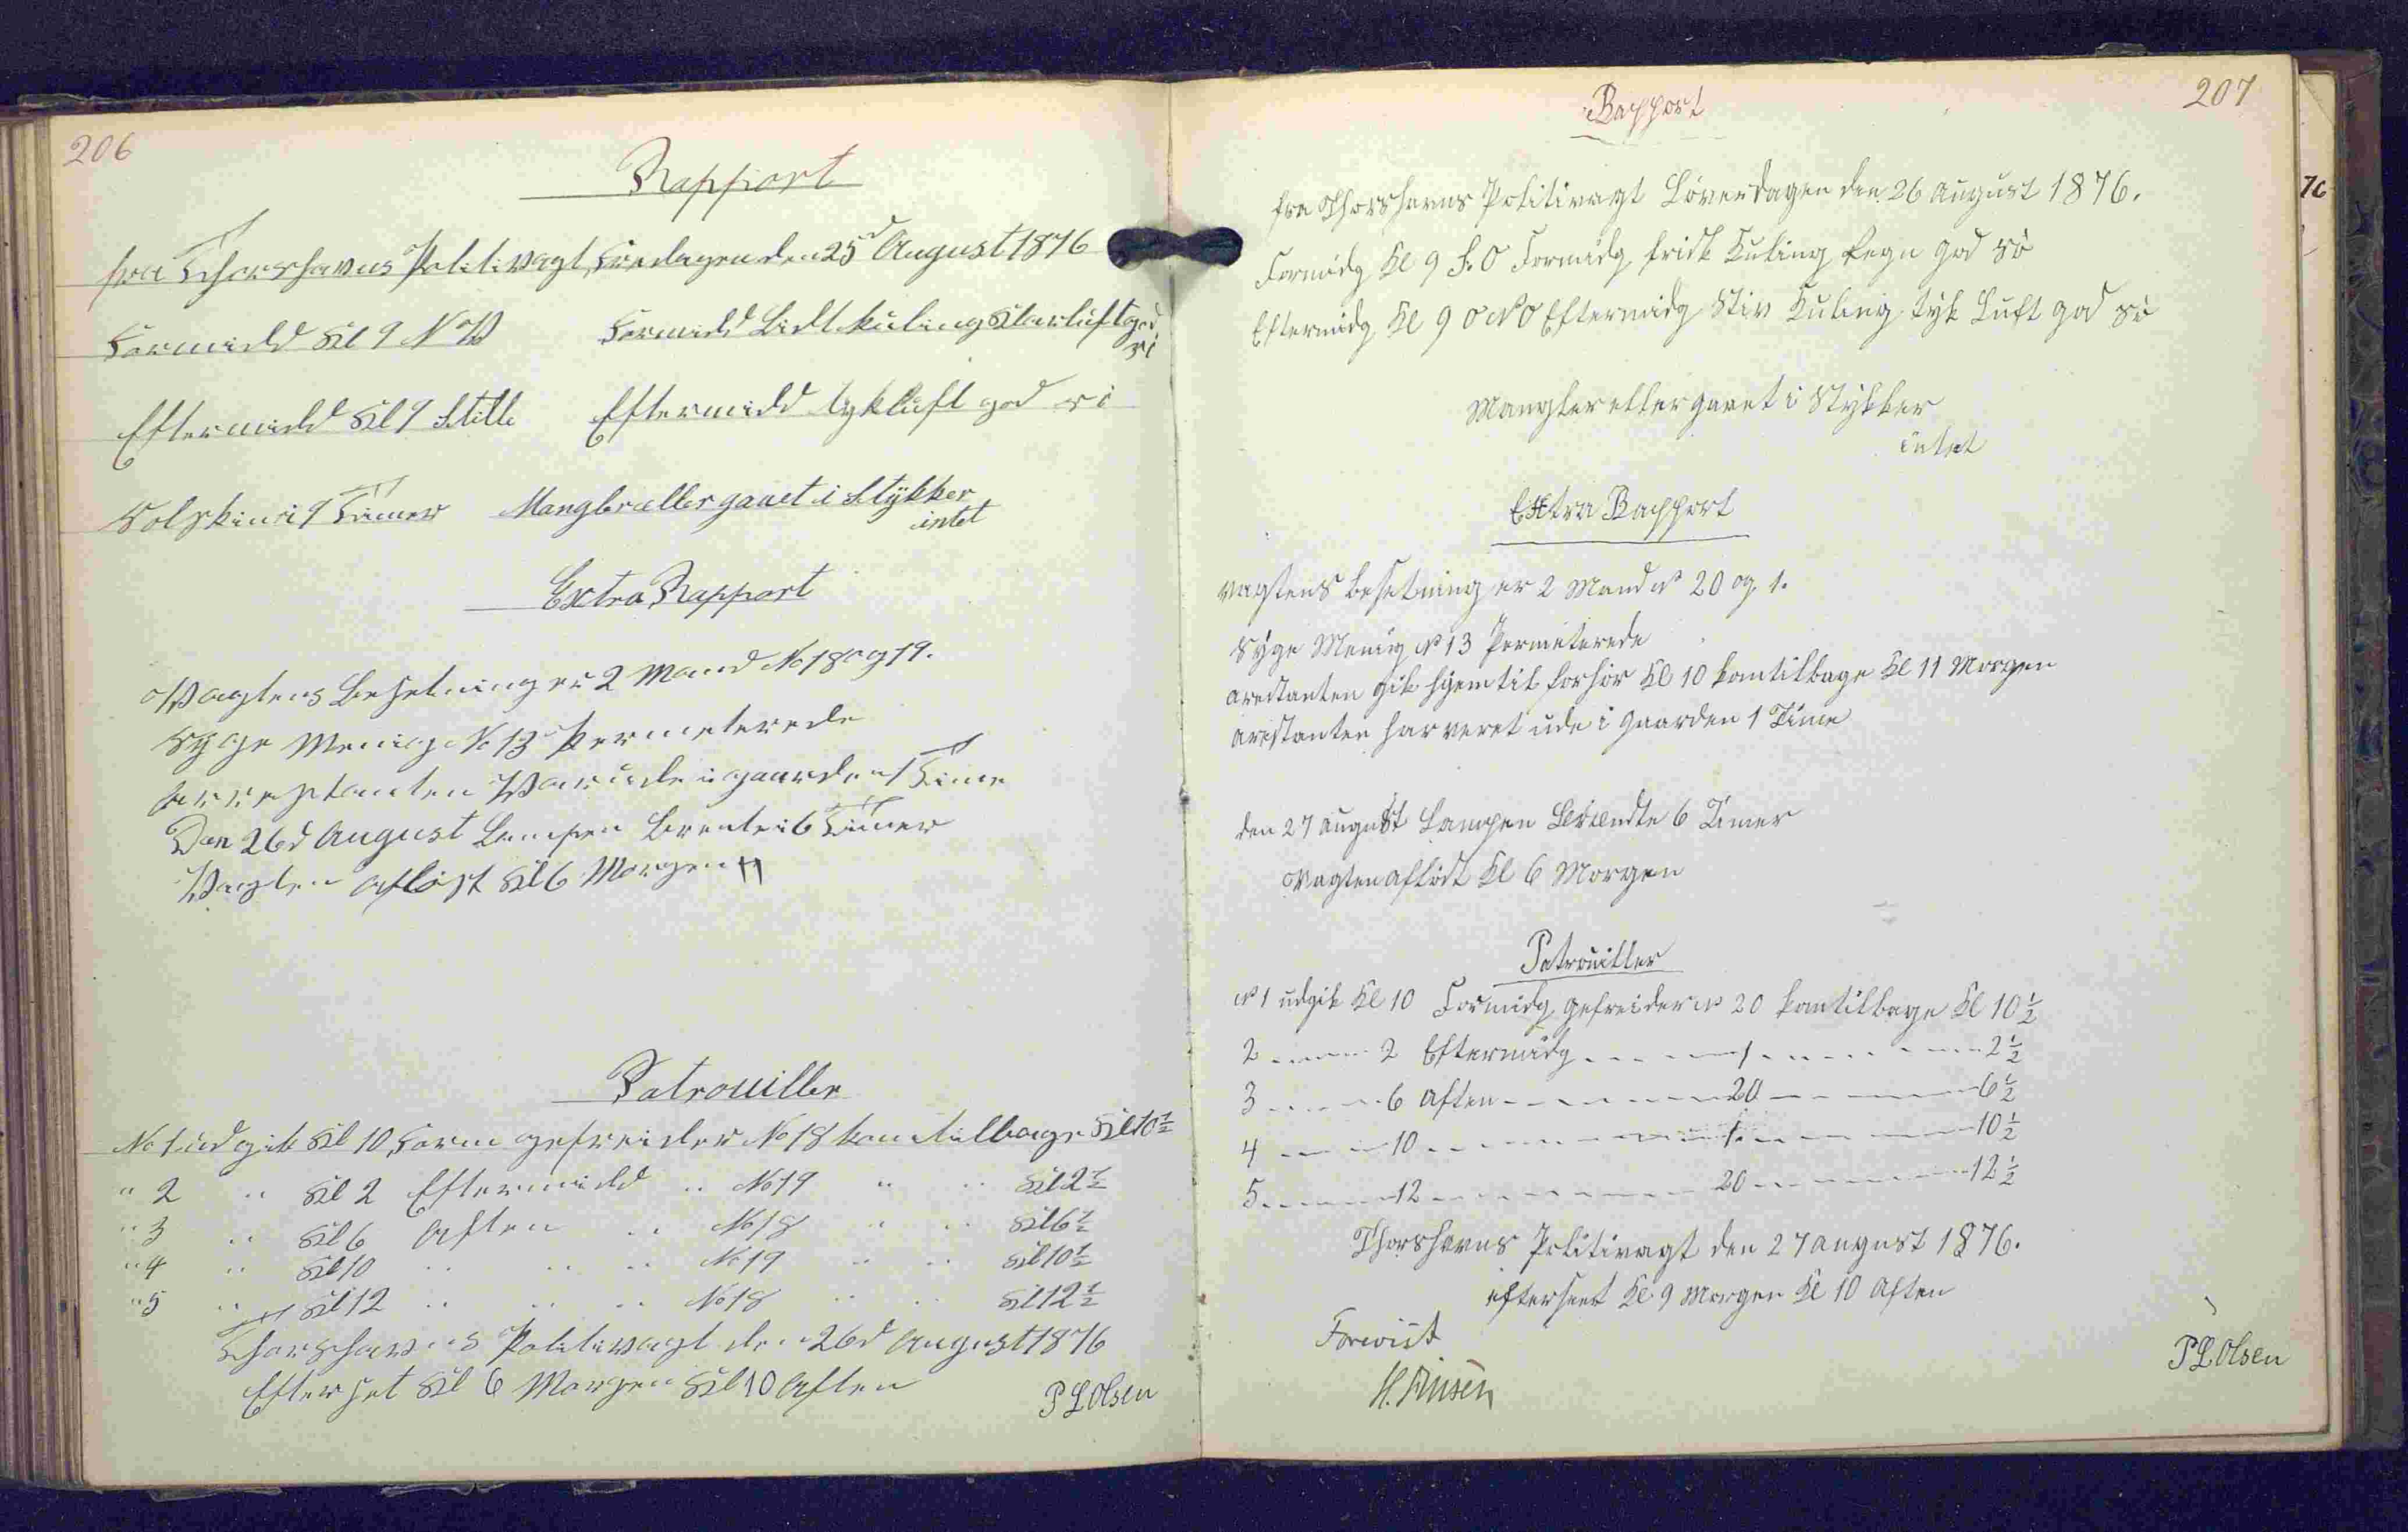 206
Rapport
fra Thorshavns Politivagt, Fredagen den 25d August 1876
Formidd Kl 9 NW Formidd Lidt Kuling Klar luft god
si
Eftermidd Kl 9 Stille Eftermidd tyk luft god si
Solskin i 9 Timer Mangler eller gaaet i Stykker
intet
Extra Rapport
Wagtens Besetning er 2 Mand No 18 og 19.
Syge Menig No 13 Permeterede
Arrestanten War ude i gaarden 1 Time
Den 26d August Lampen Brente i 6 Timer
Wagten Afløst Kl 6 Morgen
Patrouiller
No 1 ud gik Kl 10 Form gefreider No 18 kom tilbage Kl 10½
" 2 " Kl 2 Eftermidd " No 19 " " Kl 2½
" 3 " Kl 6 Aften " No 18 " " Kl 6½
" 4 " Kl 10 " " " No 19 " " Kl 10½
" 5 " Kl 12 " " " No 18 " " Kl 12½
Thorshavns Politivagt den 26d August 1876
Efterset Kl 6 Morgen Kl 10 Aften
P L Olsen
207
Rapport
fra Thorshavns Politivagt Løverdagen den 26 August 1876.
Formidg Kl 9 S.O Formidg frisk Kuling Regn god sø
Eftermidg Kl 9 ONO Eftermidg Stiv Kuling tyk Luft god sø
Mangler eller gaaet i Stykker
intet
Extra Rapport
vagtens besetning er 2 Mand No 20 og 1.
Syge Menig No 13 Permeterede
arestanten gik hjem til forhør Kl 10 kom tilbage Kl 11 Morgen
arestanten har veret ude i Gaarden 1 Time
den 27 august Lampen Brændte 6 Timer
Vagten afløst Kl 6 Morgen
Patrouiller
No 1 udgik Kl 10 Formidg gefreider No 20 kom tilbage Kl 10½
2 - - - - 2 Eftermidg - - - - 1 - - - - 2½
3 - - - - 6 Aften - - - - 20 - - - - 6½
4 - - - - 10 - - - - 1 - - - - 10½
5 - - - - 12 - - - - 20 - - - - 12½
Thorshavns Politivagt den 27 august 1876.
efterseet Kl 9 Morgen Kl 10 Aften
Forevist
P L Olsen
H. Finsen
76